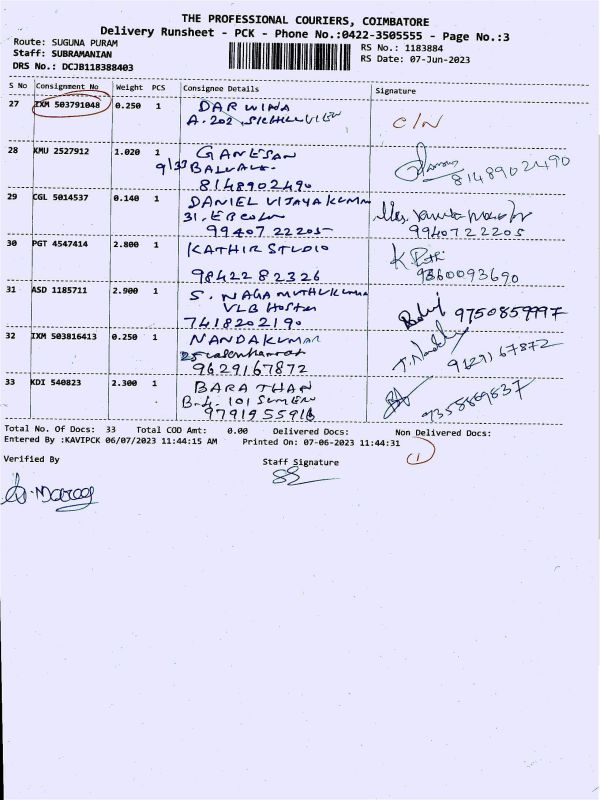 THE PROFESSIONAL COURIERS, COIMBATORE
Delivery Runsheet - PCK - Phone No.:0422-3505555 - Page No.:3
Route: SUGUNA PURAM
RS No.: 1183884
Staff: SUBRAMANIAN
RS Date: 07-Jun-2023
DRS No.: DCJB118388403
S No Consignment No Weight PCS Consignee Details Signature
27 IXM 503791048 0.250 1 DARWINA
A.202 VIEW
C/N
28 KMU 2527912 1.020 1 GANESAN
9/33
8148902490
8148902490
29 CGL 5014537 0.140 1 DANIEL VIJAYA KUMAR
31.
99407 22205
9940722205
30 PGT 4547414 2.800 1 KATHIR STUDIO
98422 82326
9360093690
31 ASD 1185711 2.900 1 S. NAGA MUTHUKUMAR
VLB
7418202190
9750859997
32 IXM 503816413 0.250 1 NANDAKUMAR
25
9629167872
9629167872
33 KDI 540823 2.300 1 BARATHAN
B-4. 101
9791955916
9358869837
Total No. Of Docs: 33 Total COD Amt: 0.00 Delivered Docs: Non Delivered Docs:
Entered By :KAVIPCK 06/07/2023 11:44:15 AM Printed On: 07-06-2023 11:44:31
1
Verified By
Staff Signature